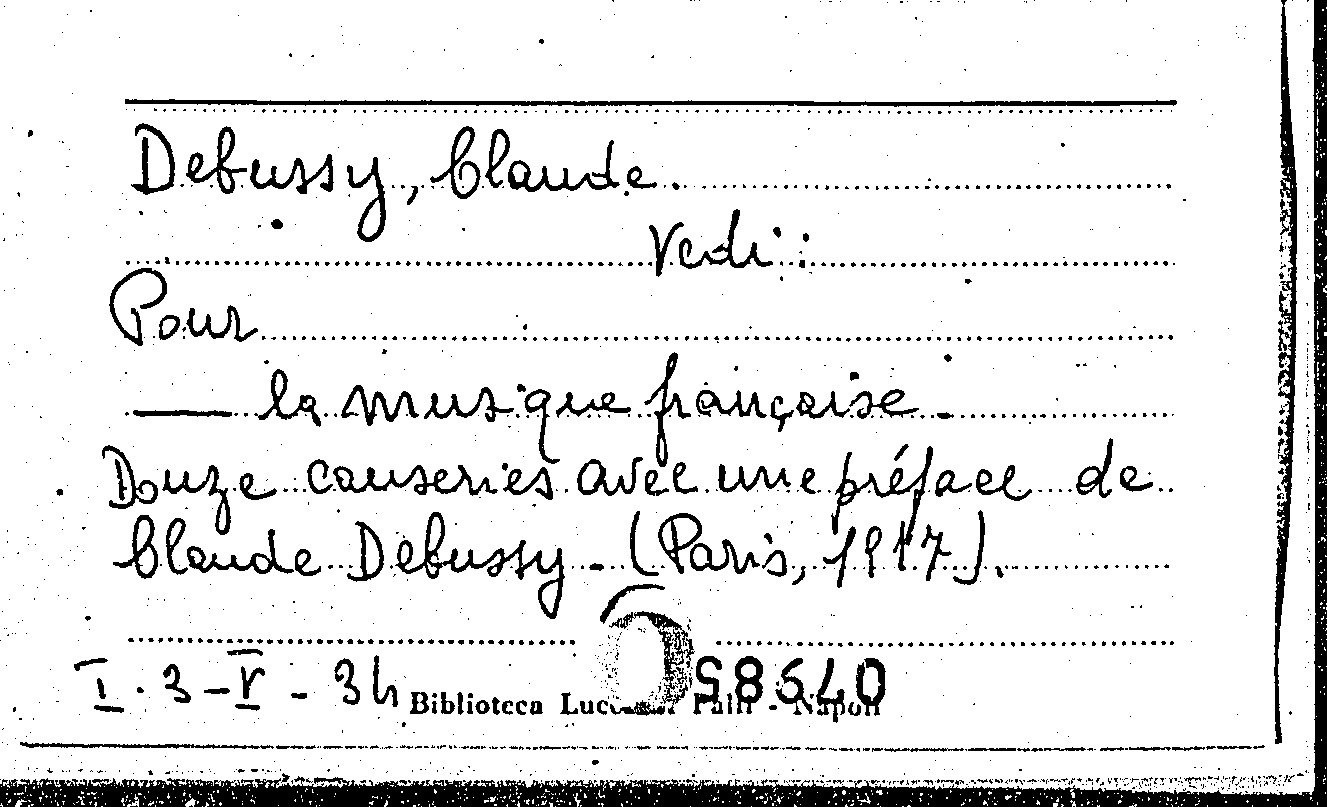 Debussy, Claude.
Vedi:
Pour
— la musique française.
Douze causeries avec une préface de
Claude Debussy - (Paris, 1917).
I. 3 - V - 34
Biblioteca - Napoli